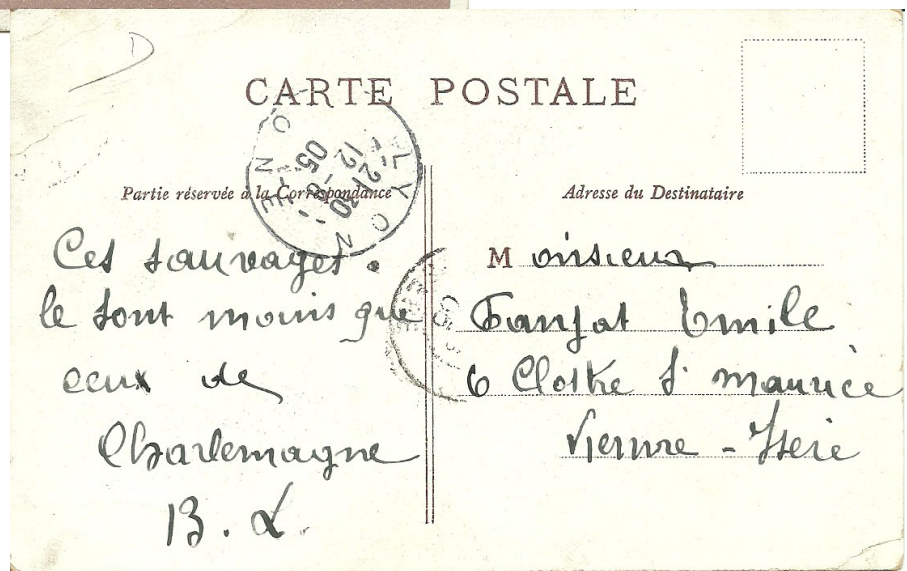 CARTE POSTALE
Partie réservée à la Correspondance
Adresse du Destinataire
LYON
RHONE
1-2130
12-8
05
Ces sauvages.
le sont moins que
ceux de
Charlemagne
B. L.
Monsieur
Fanjat Emile
6 Cloître St maurice
Vienne - Isère